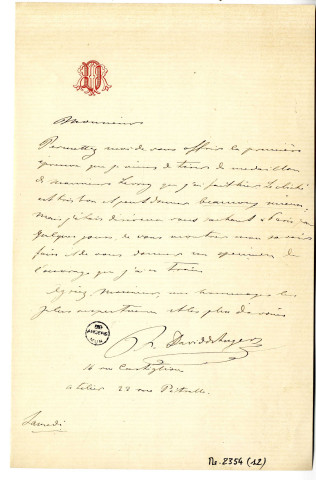 Monsieur
Permettez moi de vous offrir la première
épreuve que je viens de tirer du médaillon
de monsieur que j'ai fait hier. Le cliché
est très bon et peut donner beaucoup mieux,
mais j'étais désireux vous sachant à Paris
quelques jours, de vous montrer mon savoir
faire et de vous donner un specimen de
l'ouvrage que j'ai
Agréez Monsieur, mes hommages les
plus respectueux et les plus dévoués
R. David d'Angers
14 rue Castiglione
atelier 22 rue
Samedi
Ms. 2354 (12)